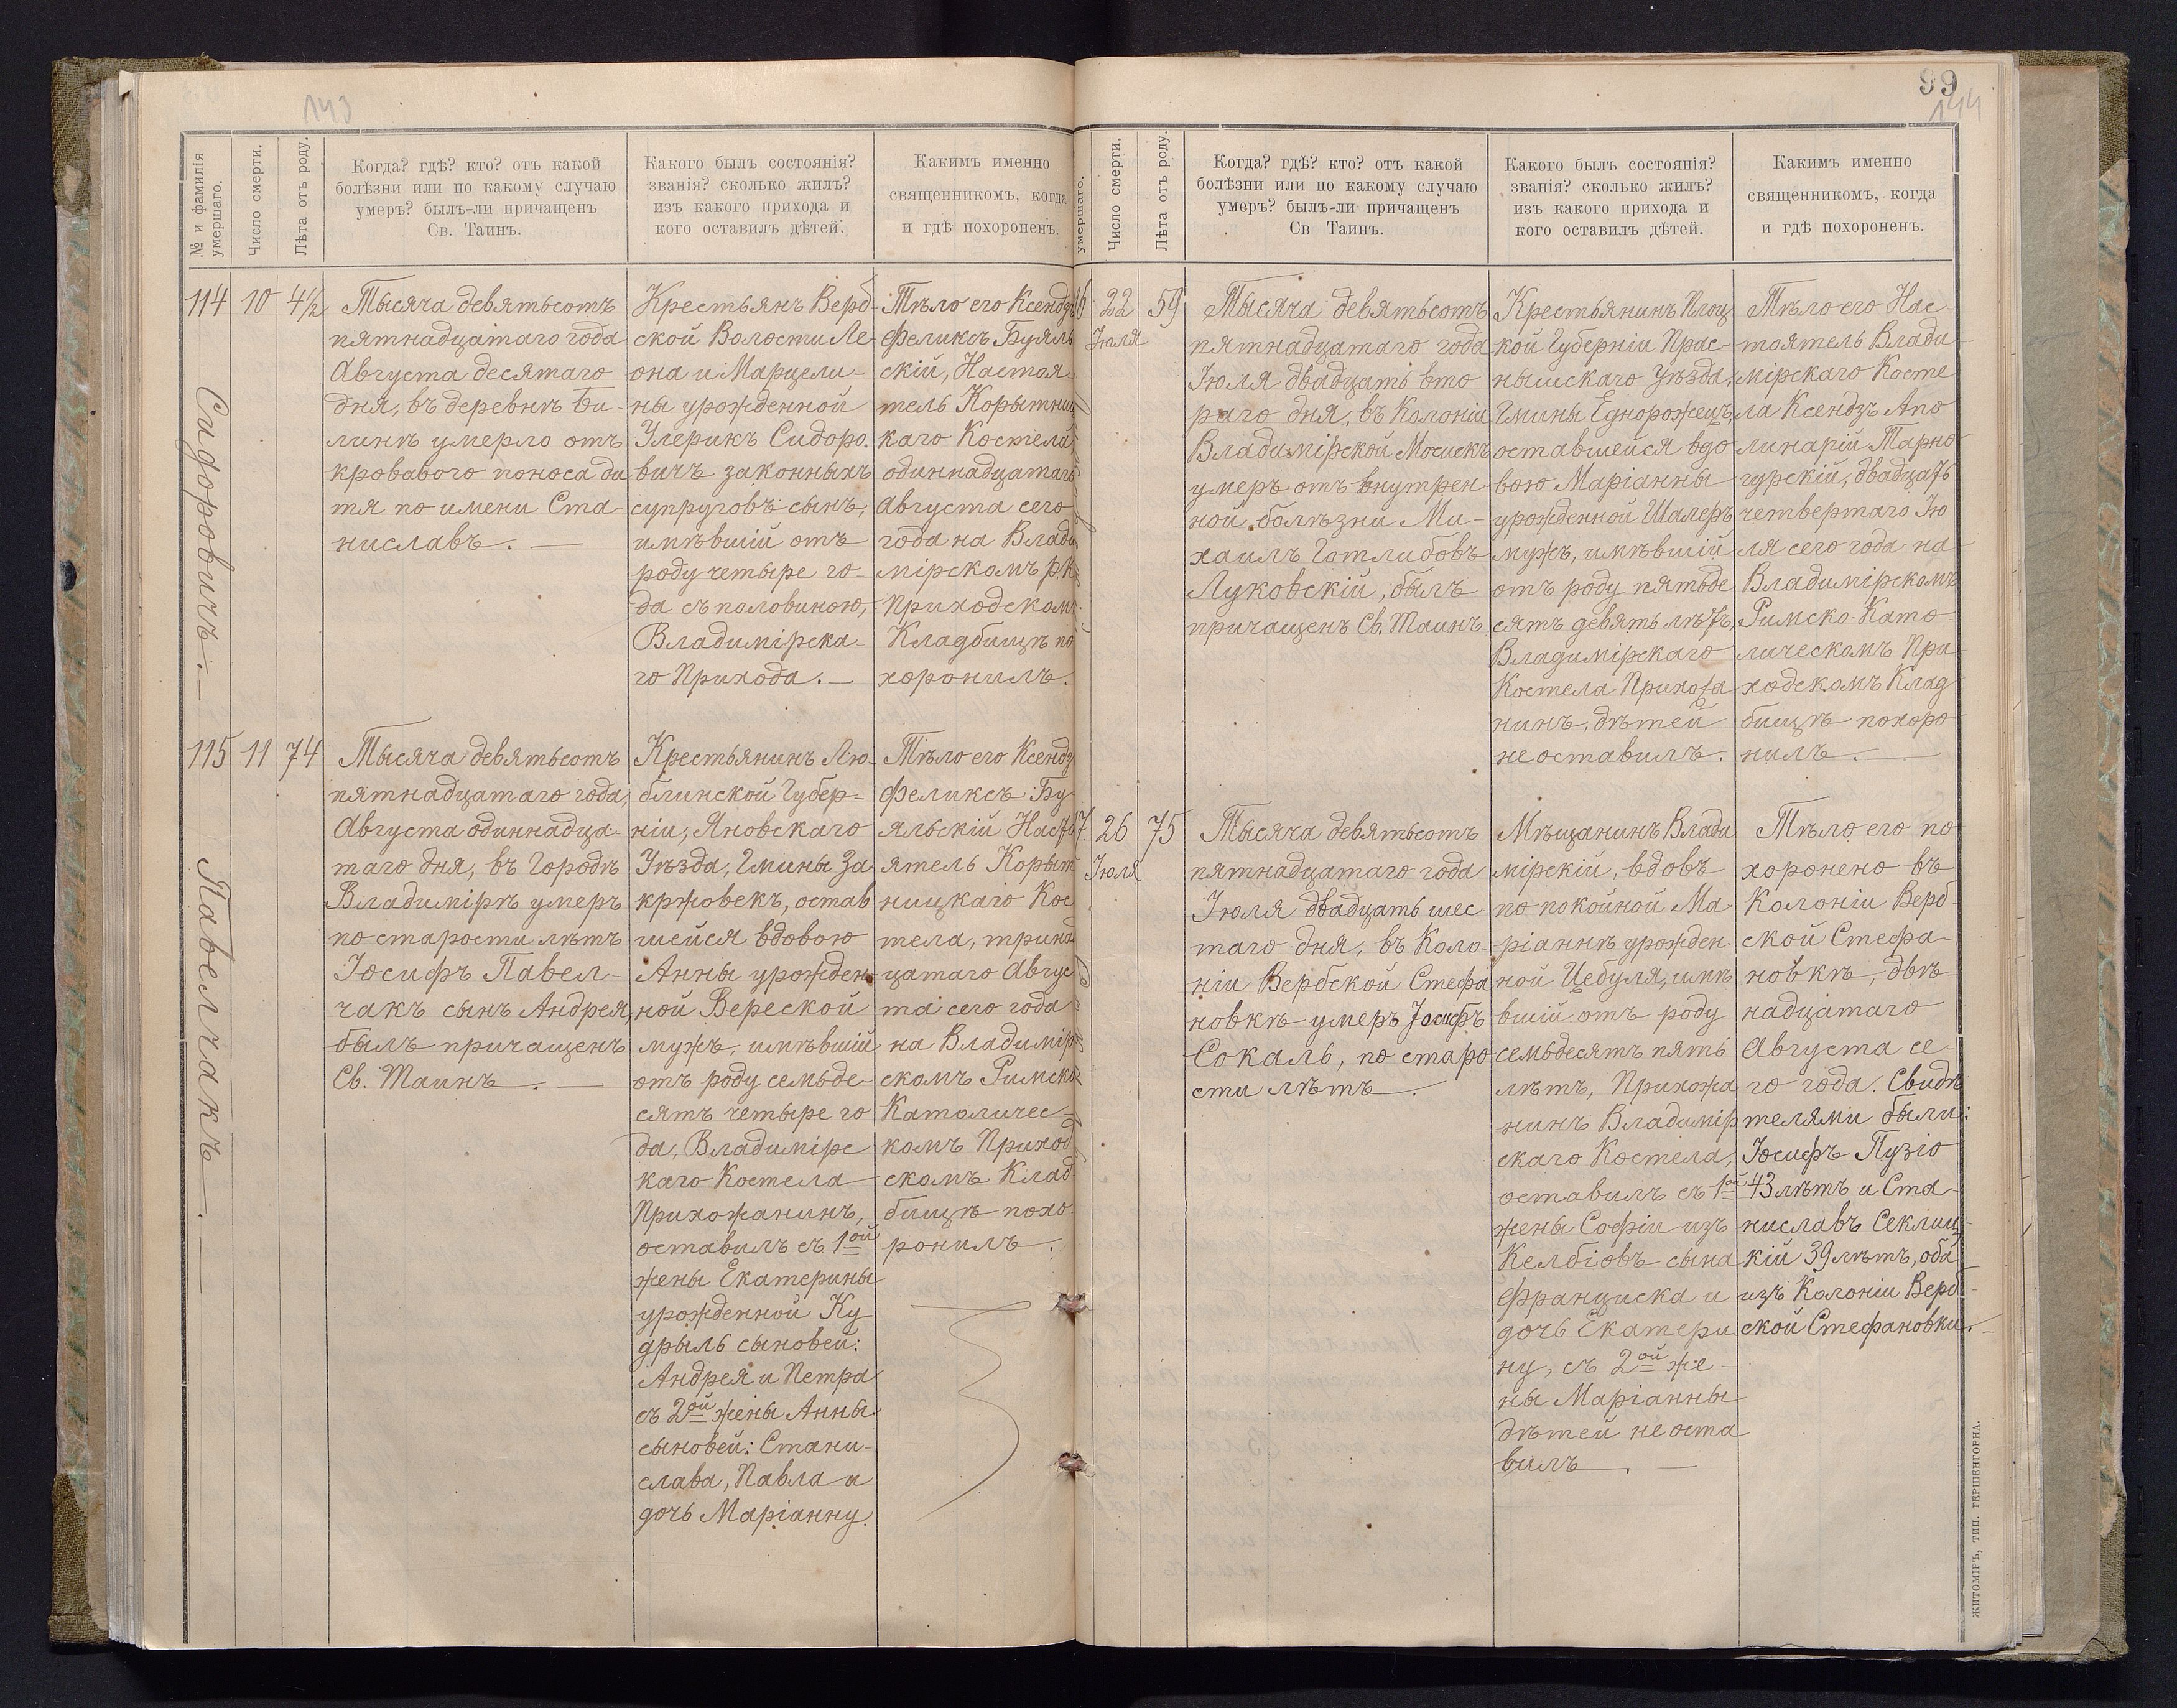 143
№ и фамилія
умершаго.
Число смерти.
Лѣта отъ роду.
Когда? гдѣ? кто? отъ какой
болѣзни или по какому случаю
умеръ? былъ-ли причащенъ
Св. Таинъ.
Какого былъ состоянія?
званія? сколько жилъ?
изъ какого прихода и
кого оставилъ дѣтей.
Какимъ именно
священникомъ, когда
и гдѣ похороненъ.
114
Сидоровичъ.
10
4½
Тысяча девятьсотъ
пятнадцатаго года
Августа десятаго
дня, въ деревнѣ Би-
линѣ умерло отъ
кроваваго поноса ди
тя по имени Ста-
ниславъ.
Крестьянъ Верб-
ской Волости Ле-
она и Марцели-
ны урожденной
Улерикъ Сидоро-
вичъ законныхъ
супруговъ сынъ,
имѣвшій отъ
роду четыре го-
да съ половиною,
Владимірска-
го Прихода.
Тѣло его Ксендзъ
Феликсъ Буяль
скій, Настоя-
тель Корытниц
каго Костела
одиннадцатаго
Августа сего
года на Влади
мірскомъ р.к.
Приходскомъ
Кладбищѣ по
хоронилъ.
115
Павелчакъ.
11
74
Тысяча девятьсотъ
пятнадцатаго года,
Августа одиннадца-
таго дня, въ Городѣ
Владимірѣ умеръ
по старости лѣтъ
Іосифъ Павел-
чакъ сынъ Андрея,
былъ причащенъ
Св. Таинъ.
Крестьянинъ Лю-
блинской Губер-
ніи, Яновскаго
Уѣзда, Гмины За-
кржовекъ, остав
шейся вдовою
Анны урожден-
ной Вереской
мужъ, имѣвшій
отъ роду семьде-
сятъ четыре го
да, Владимірс
каго Костела
Прихожанинъ,
оставилъ съ 1ой
жены Екатерины
урожденной Ку
дрыль сыновей:
Андрея и Петра
съ 2ой жены Анны
сыновей: Стани-
слава, Павла и
дочь Маріанну.
Тѣло его Ксендз
Феликсъ Бу-
яльскій Насто
ятель Корыт
ницкаго Кос
тела, тринад
цатаго Авгус
та сего года
на Владимір
скомъ Римско
Католичес-
комъ Приход
скомъ Клад
бищѣ похо-
ронилъ.
99
144
умершаго.
Число смерти.
Лѣта отъ роду.
Когда? гдѣ? кто? отъ какой
болѣзни или по какому случаю
умеръ? былъ-ли причащенъ
Св Таинъ.
Какого былъ состоянія?
званія? сколько жилъ?
изъ какого прихода и
кого оставилъ дѣтей.
Какимъ именно
священникомъ, когда
и гдѣ похороненъ.
6
22
Іюля
59
Тысяча девятьсотъ
пятнадцатаго года
Іюля двадцать вто
раго дня, въ Колоніи
Владимірской Мосискъ
умеръ отъ внутрен-
ной болѣзни Ми-
хаилъ Готлибовъ
Луковскій, былъ
причащенъ Св. Таинъ
Крестьянинъ Плоц
кой Губерніи Прас-
нышскаго Уѣзда,
Гмины Еднорожецъ,
оставшейся вдо
вою Маріанны
урожденной Шалеръ
мужъ, имѣвшій
отъ роду пятьде
сятъ девять лѣтъ,
Владимірскаго
Костела Прихожа
нинъ, дѣтей
не оставилъ.
Тѣло его Нас-
тоятель Влади-
мірскаго Косте
ла Ксендзъ Апо
линарій Тарно-
гурскій, двадцать
четвертаго Ію
ля сего года на
Владимірскомъ
Римско-Като-
лическомъ При-
ходскомъ Клад
бищѣ похоро
нилъ.
7.
26
Іюля
75
Тысяча девятьсотъ
пятнадцатаго года
Іюля двадцать шес
таго дня, въ Коло-
ніи Вербской Стефа
новкѣ умеръ Іосифъ
Сокаль, по старо
сти лѣтъ.
Мѣщанинъ Влади
мірскій, вдовъ
по покойной Ма-
ріаннѣ урожден-
ной Цебуля, имѣ
вшій отъ роду
семьдесятъ пять
лѣтъ, Прихожа
нинъ Владимір
скаго Костела,
оставилъ съ 1ой
жены Софіи изъ
Келбіовъ сына
Франциска и
дочь Екатери
ну, съ 2ой же-
ны Маріанны
дѣтей не оста
вилъ.
Тѣло его по
хоронено въ
Колоніи Верб-
ской Стефа-
новкѣ, двѣ-
надцатаго
Августа се-
го года. Свидѣ
телями были:
Іосифъ Пузіо
43 лѣтъ и Ста-
ниславъ Секлиц-
кій 39 лѣтъ, оба
изъ Колоніи Верб-
ской Стефановки.
ЖИТОМІРЪ, ТИП. ГЕРШЕНГОРНА.